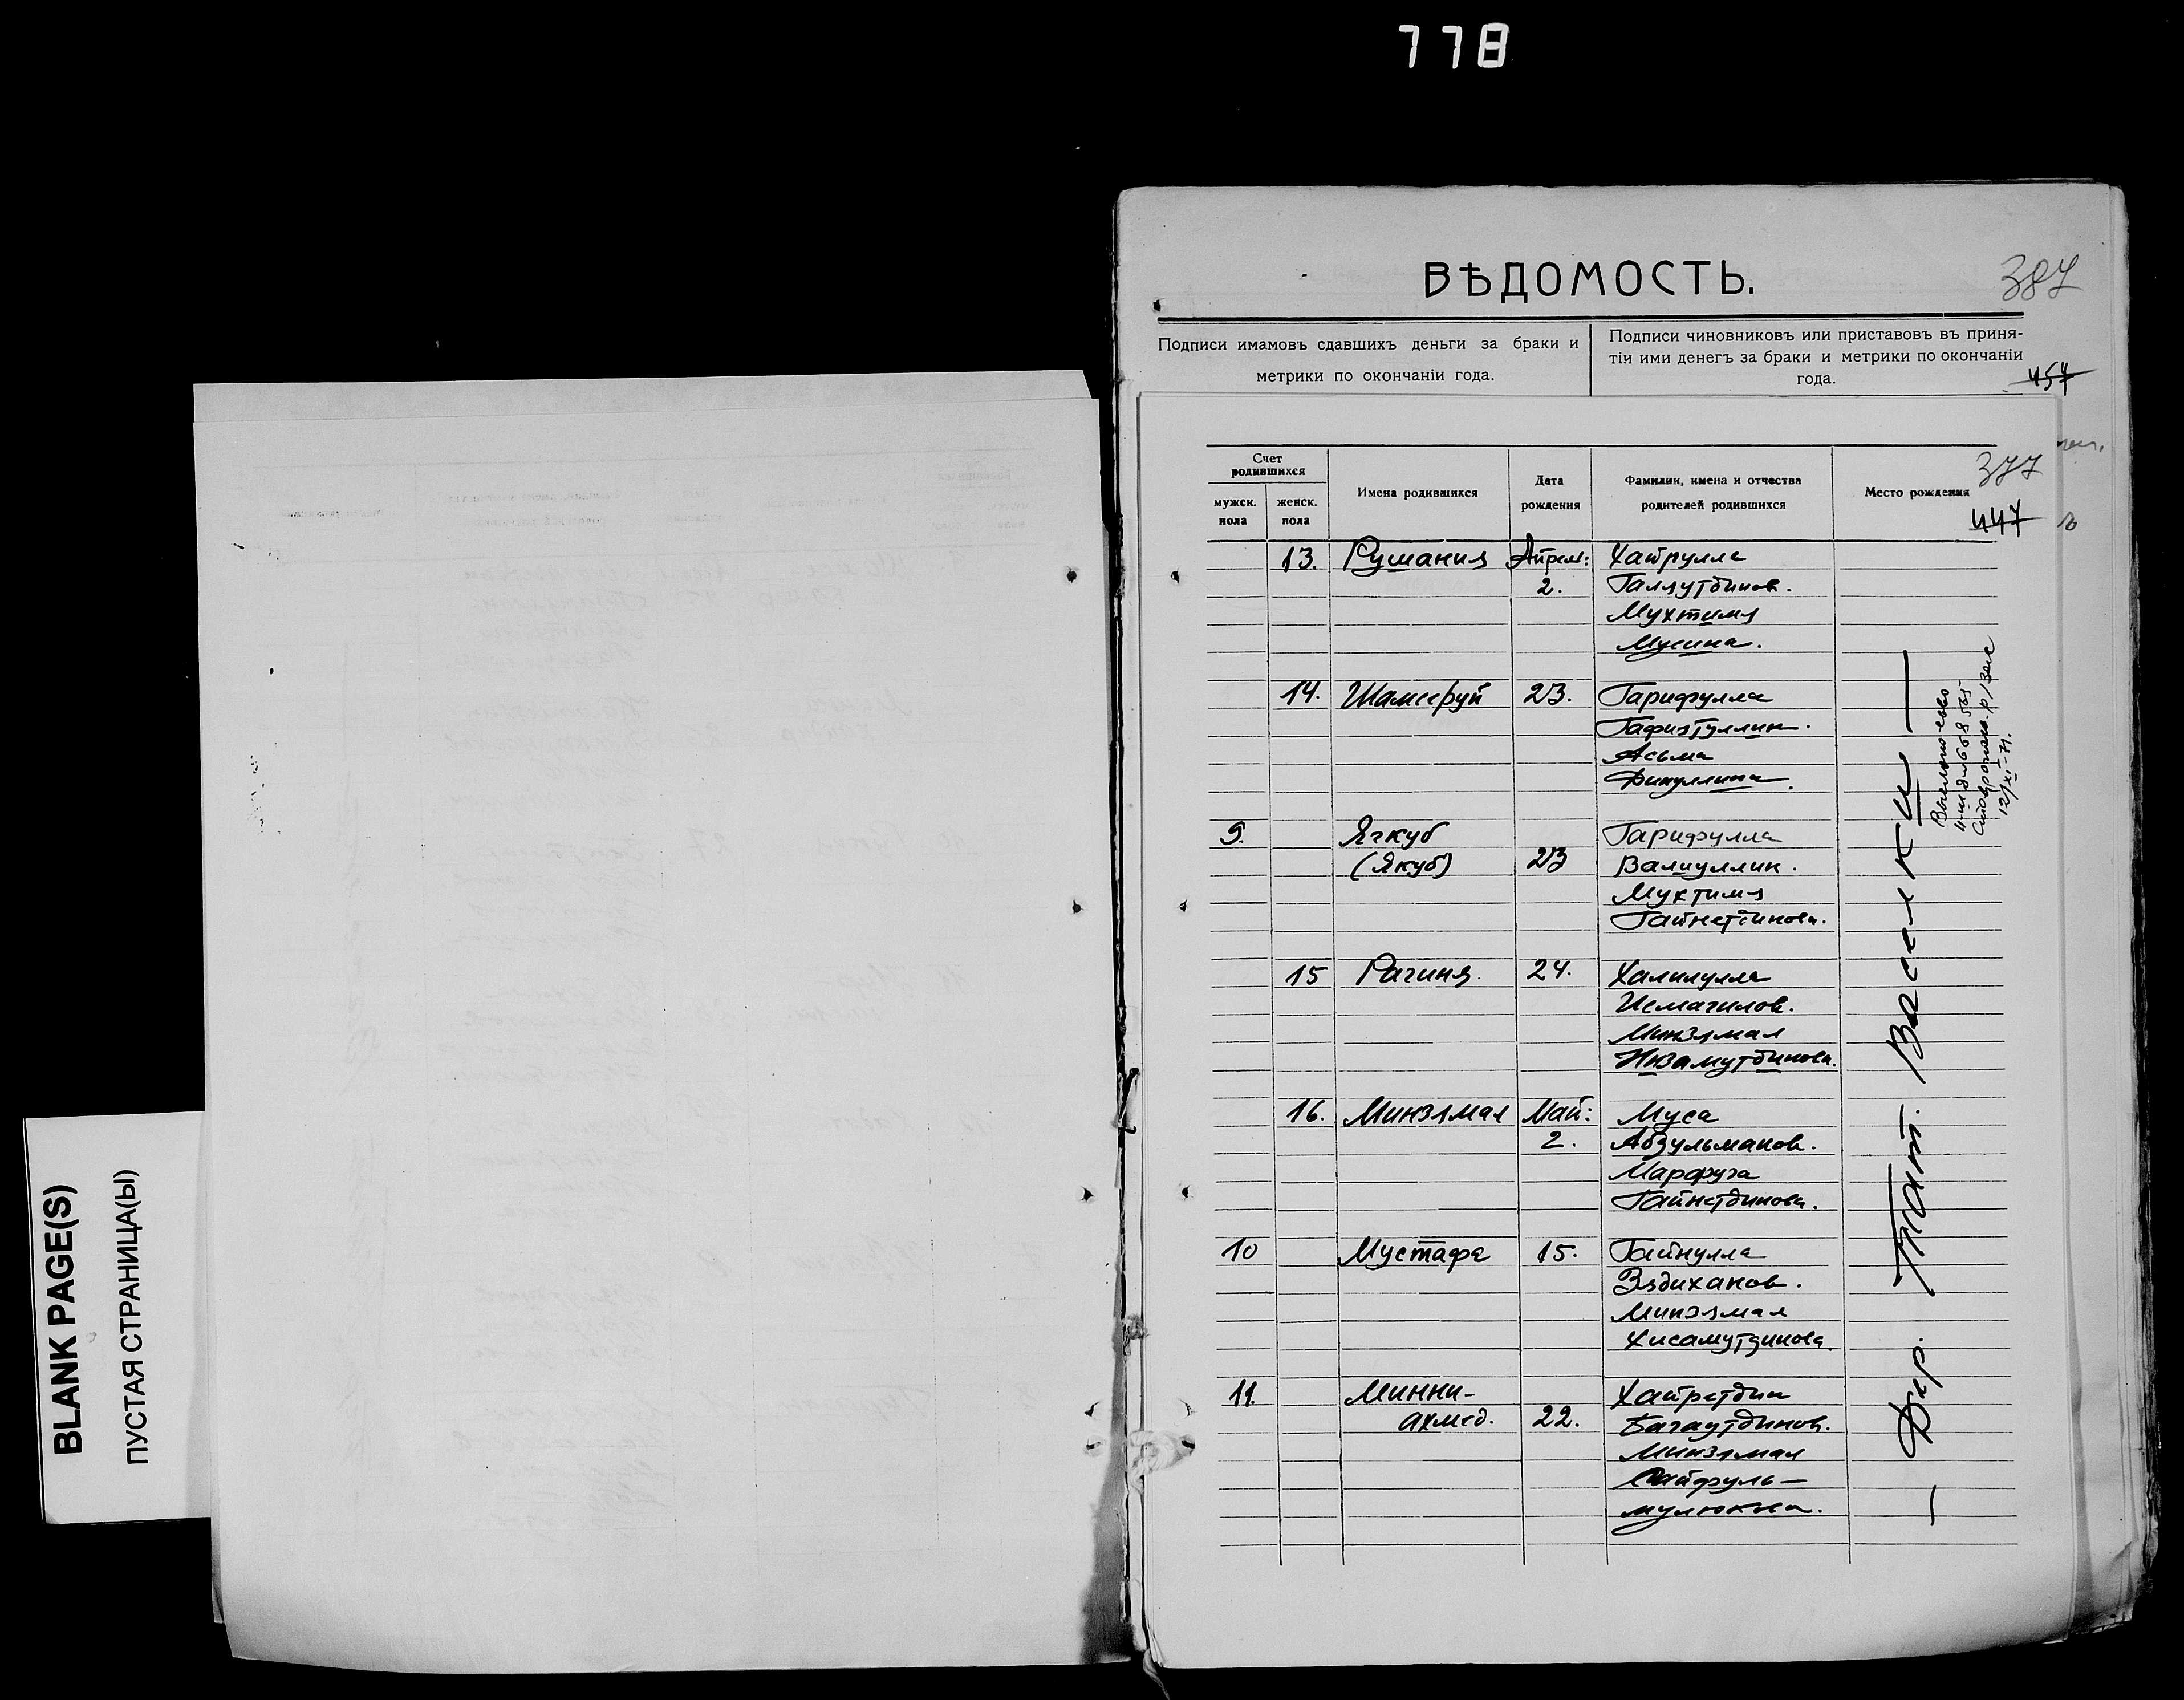 778
ВѢДОМОСТЬ.
387
Подписи имамовъ сдавшихъ деньги за браки и
метрики по окончанiи года.
Подписи чиновниковъ или приставовъ въ приня-
тiи ими денегъ за браки и метрики по окончанiи
года.
457
377
447
Счет
родившихся
мужск.
пола
женск.
пола
Имена родившихся
Дата
рождения
Фамилии, имена и отчества
родителей родившихся
Место рождения
13. Румания Апрел: Хайрулла
2. Галяутдинов.
Мухтимя
Мусина.
14. Шамсеруй 23. Гарифулла
Гафиятуллин.
Асьма
9. Ягкуб Гарифулла
(Якуб) 23 Валиуллин.
Мухтимя
Гайнетдинова.
15 Рагиня. 24. Халилулла
Исмагилов.
Минзямал
Низамутдинова.
16. Минзямал Май: Муса
2. Абзульманов.
Марфуга
Гайнетдинова.
10 Мустафа 15. Гайнулла
Зядиханов.
Минзямал
Хисамутдинова.
11. Минни- Хайретдин
ахмед. 22. Багаутдинов.
Минзямал
Сайфуль-
мулюкова.
— Дер. Тат. Васелки —
12/XI-71.
BLANK PAGE(S)
ПУСТАЯ СТРАНИЦА(Ы)